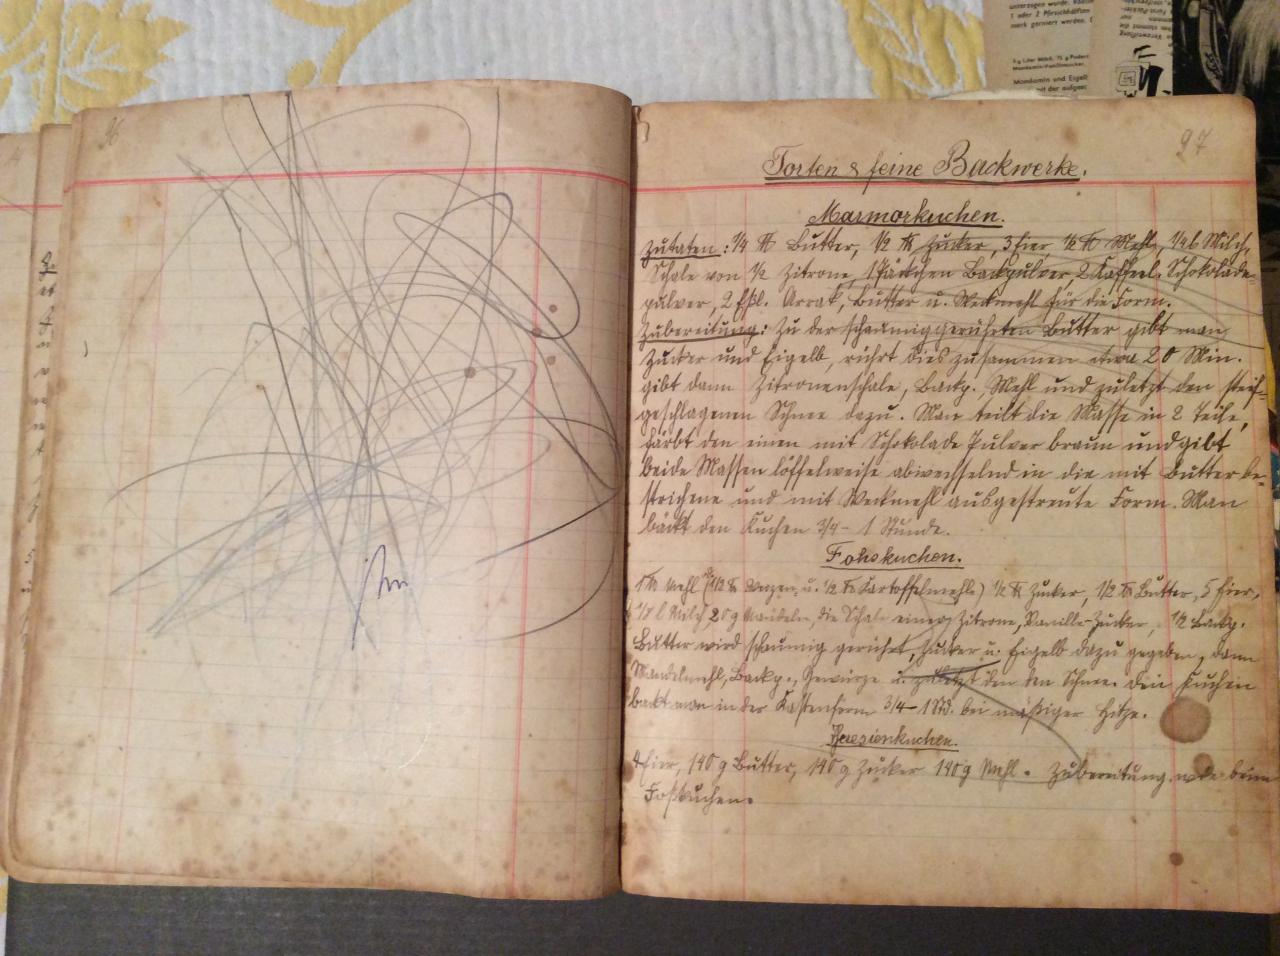 unterzogen wurde.
1 oder 2 Pfirsichhälften
merk garniert werden.
Mondamin und Eigelb
mit der aufgesc
96
97
Torten & feine Backwerke.
Marmorkuchen.
Zutaten: 1/4 ℔ Butter, 1/2 ℔ Zucker, 3 Eier 1/2 ℔ Mehl, Milch,
Schale von 1/2 Zitrone, 1 Päckchen Backpulver 2 Kaffeel. Schokolade-
pulver, 2 Eßl. Arrak, Butter u. Weckmehl für die Form.
Zubereitung: Zu der schaumiggerührten Butter gibt man
Zucker und Eigelb, rührt dies zusammen etwa 20 Min.
gibt dann Zitronenschale, Backp. Mehl und zuletzt den steif-
geschlagenen Schnee dazu. Man teilt die Masse in 2 Teile,
färbt den einen mit Schokolade Pulver braun und gibt
beide Massen löffelweise abwechselnd in die mit Butter be-
strichene und mit Weckmehl ausgestreute Form. Man
bäckt den Kuchen 3/4 - 1 Stunde.
1 ℔ Mehl (1/2 ℔ Weizen u. 1/2 ℔ Kartoffelmehl) 1/2 ℔ Zucker, 1/2 ℔ Butter, 5 Eier,
1/8 l Milch 20 g Mandeln, die Schale einer Zitrone, Vanille-Zucker, 1/2 Backp.
Butter wird schaumig gerührt, Zucker u. Eigelb dazu gegeben, dann
Mandelmehl, Backp., Gewürze u. zuletzt den Schnee. Den Kuchen
backt man in der Kastenform 3/4 - 1 Std. bei mäßiger Hitze.
4 Eier, 140 g Butter, 140 g Zucker 140 g Mehl. Zubereitung wie beim